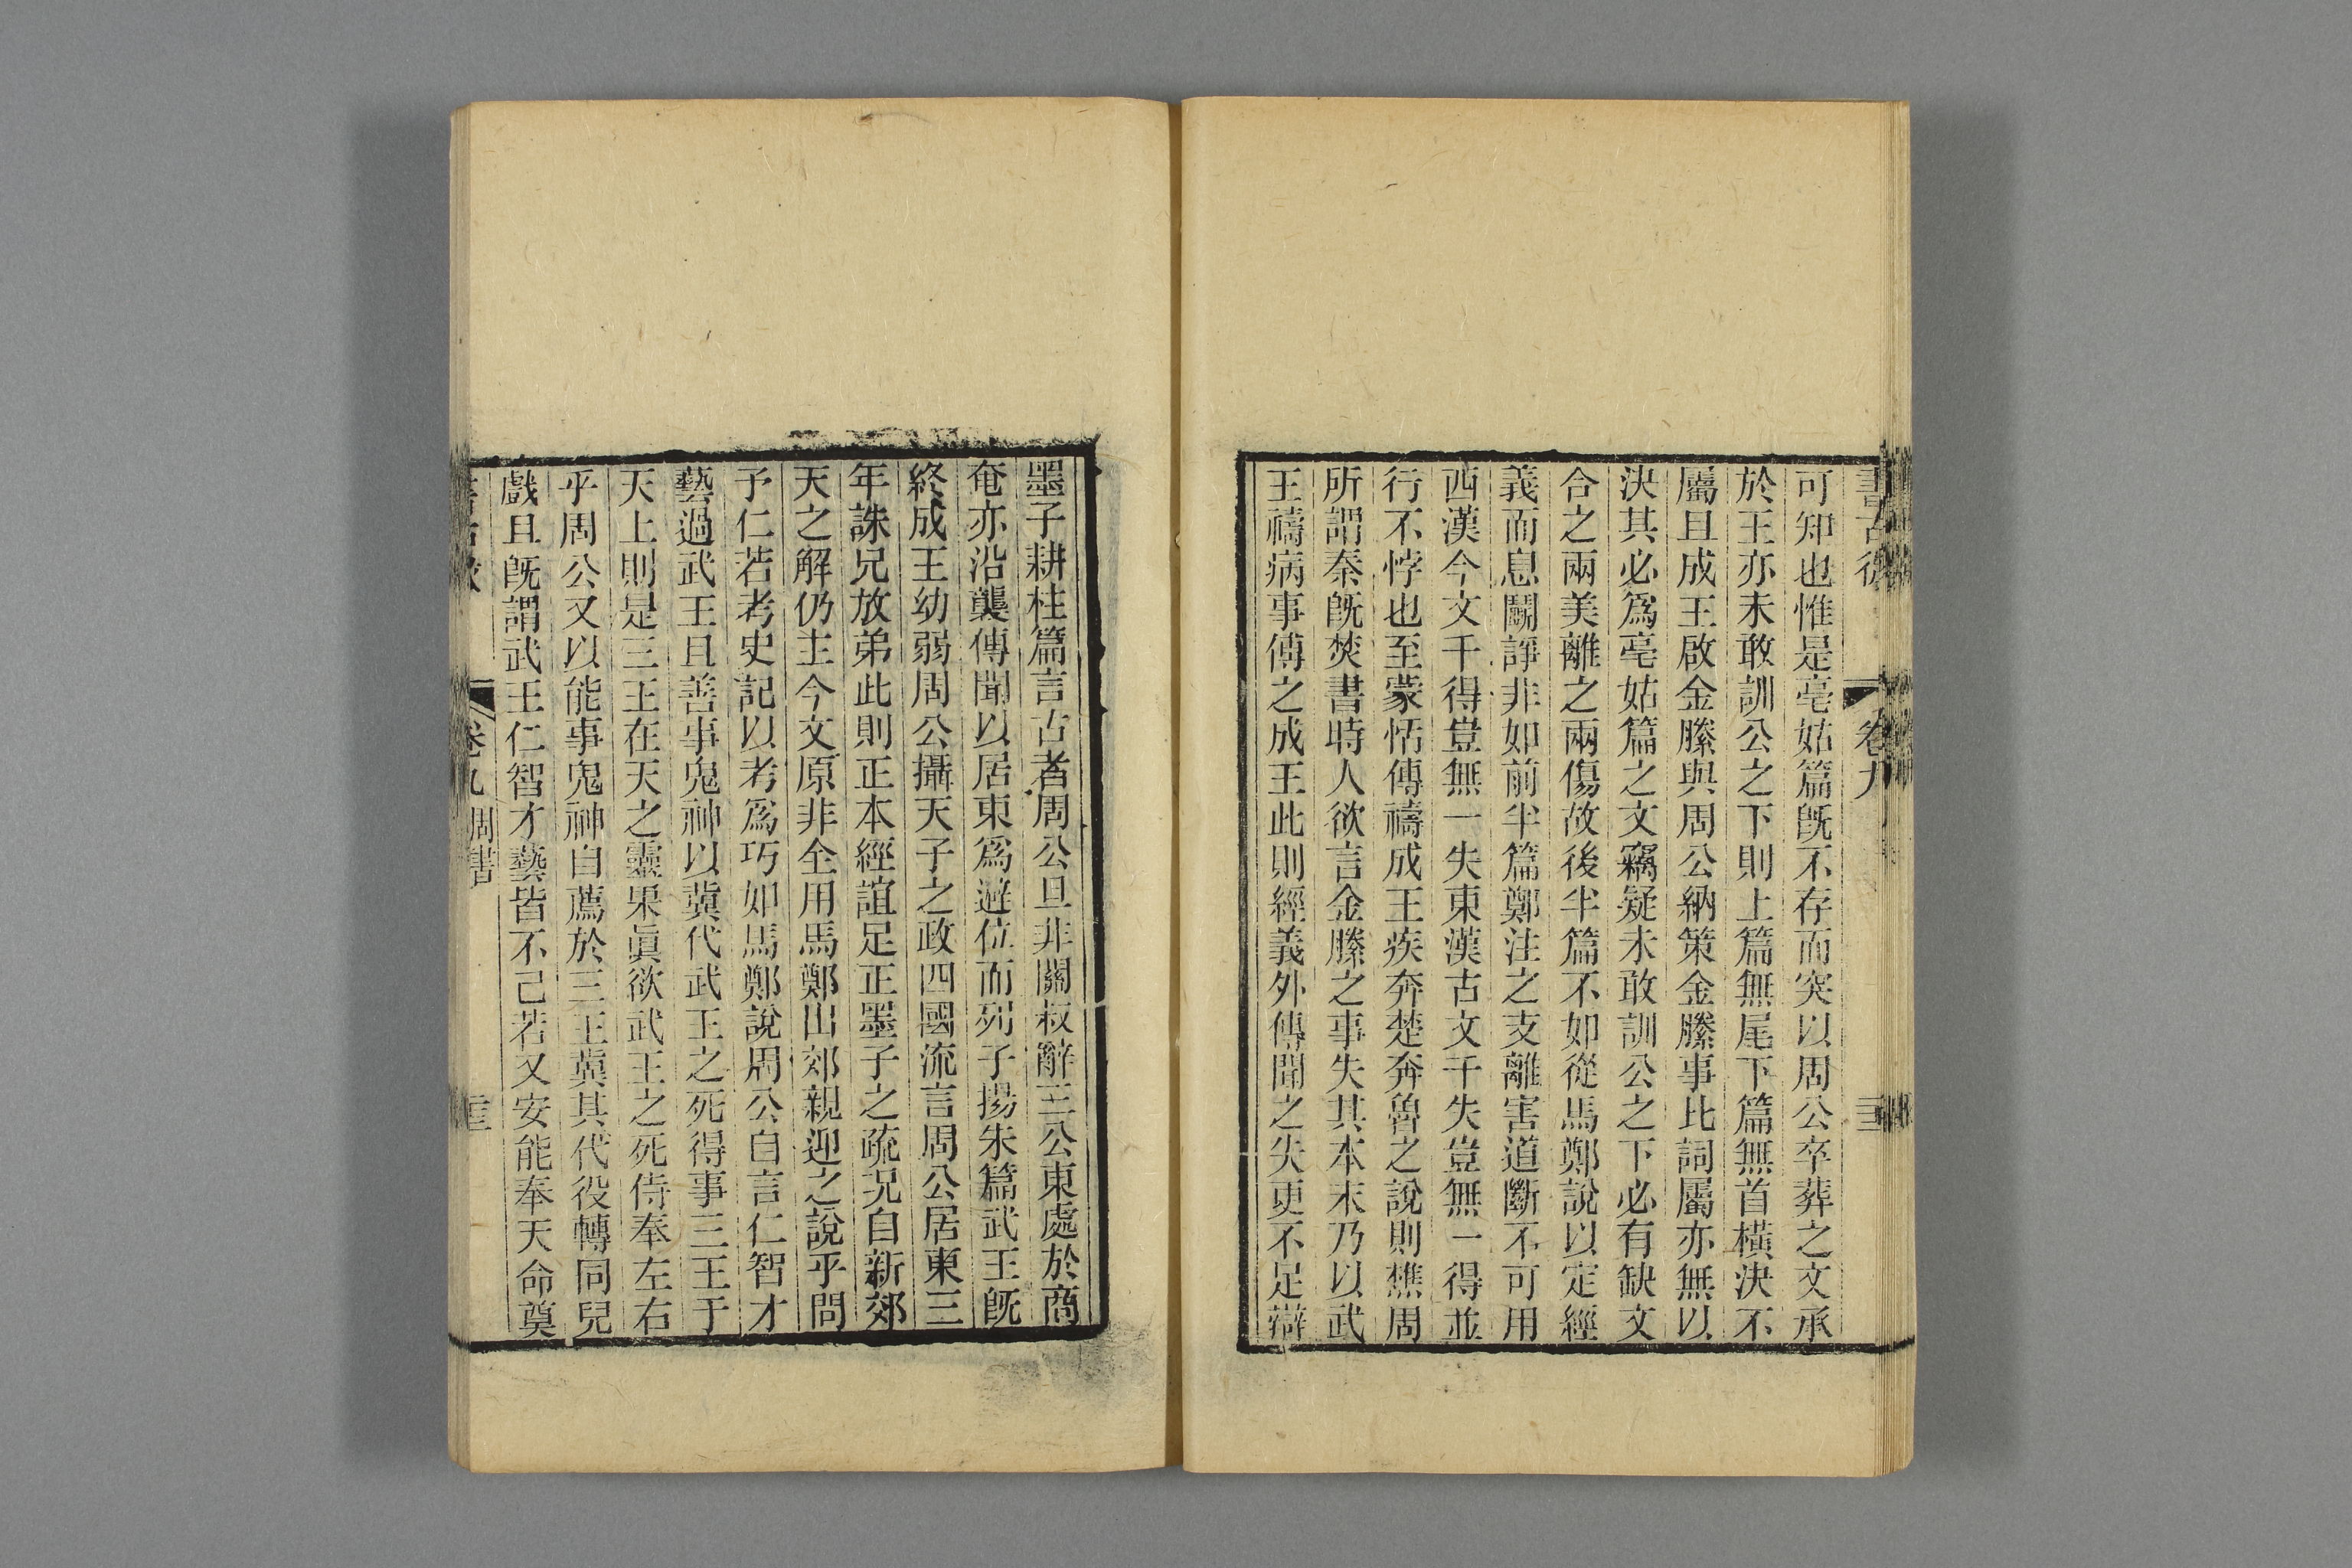 書古微 卷九
可知也惟是亳姑篇旣不存而突以周公卒葬之文承
於王亦未敢訓公之下則上篇無尾下篇無首橫決不
屬且成王啟金縢與周公納策金縢事比詞屬亦無以
決其必爲亳姑篇之文竊疑未敢訓公之下必有缺文
合之兩美離之兩傷故後半篇不如從馬鄭說以定經
義而息鬭諍非如前半篇鄭注之支離害道斷不可用
西漢今文千得豈無一失東漢古文千失豈無一得並
行不悖也至蒙恬傳禱成王疾奔楚奔魯之說則譙周
所謂秦旣焚書時人欲言金縢之事失其本末乃以武
王禱病事傅之成王此則經義外傳聞之失更不足辯
墨子耕柱篇言古者周公旦非關叔辭三公東處於商
奄亦沿襲傳聞以居東爲避位而列子揚朱篇武王旣
終成王幼弱周公攝天子之政四國流言周公居東三
年誅兄放弟此則正本經誼足正墨子之疏況自新郊
天之解仍主今文原非全用馬鄭出郊親迎之說乎問
予仁若考史記以考爲巧如馬鄭說周公自言仁智才
藝過武王且善事鬼神以冀代武王之死得事三王于
天上則是三王在天之靈果眞欲武王之死侍奉左右
乎周公又以能事鬼神自薦於三王冀其代役轉同兒
戲且旣謂武王仁智才藝皆不己若又安能奉天命奠
卷九周書